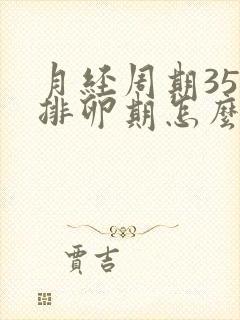 月经周期35
排卵期怎麽
贾吉